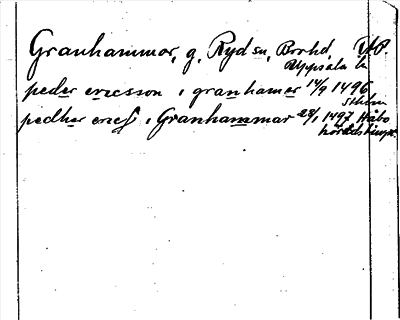 Granhammar, g, Ryd sn, Brohd, UP.
Uppsala l.
peder ericsson i granhamar 14/9 1496
Sthlm
pedher ericss i Granhammar 28/1 1497 Håbo
häradsting